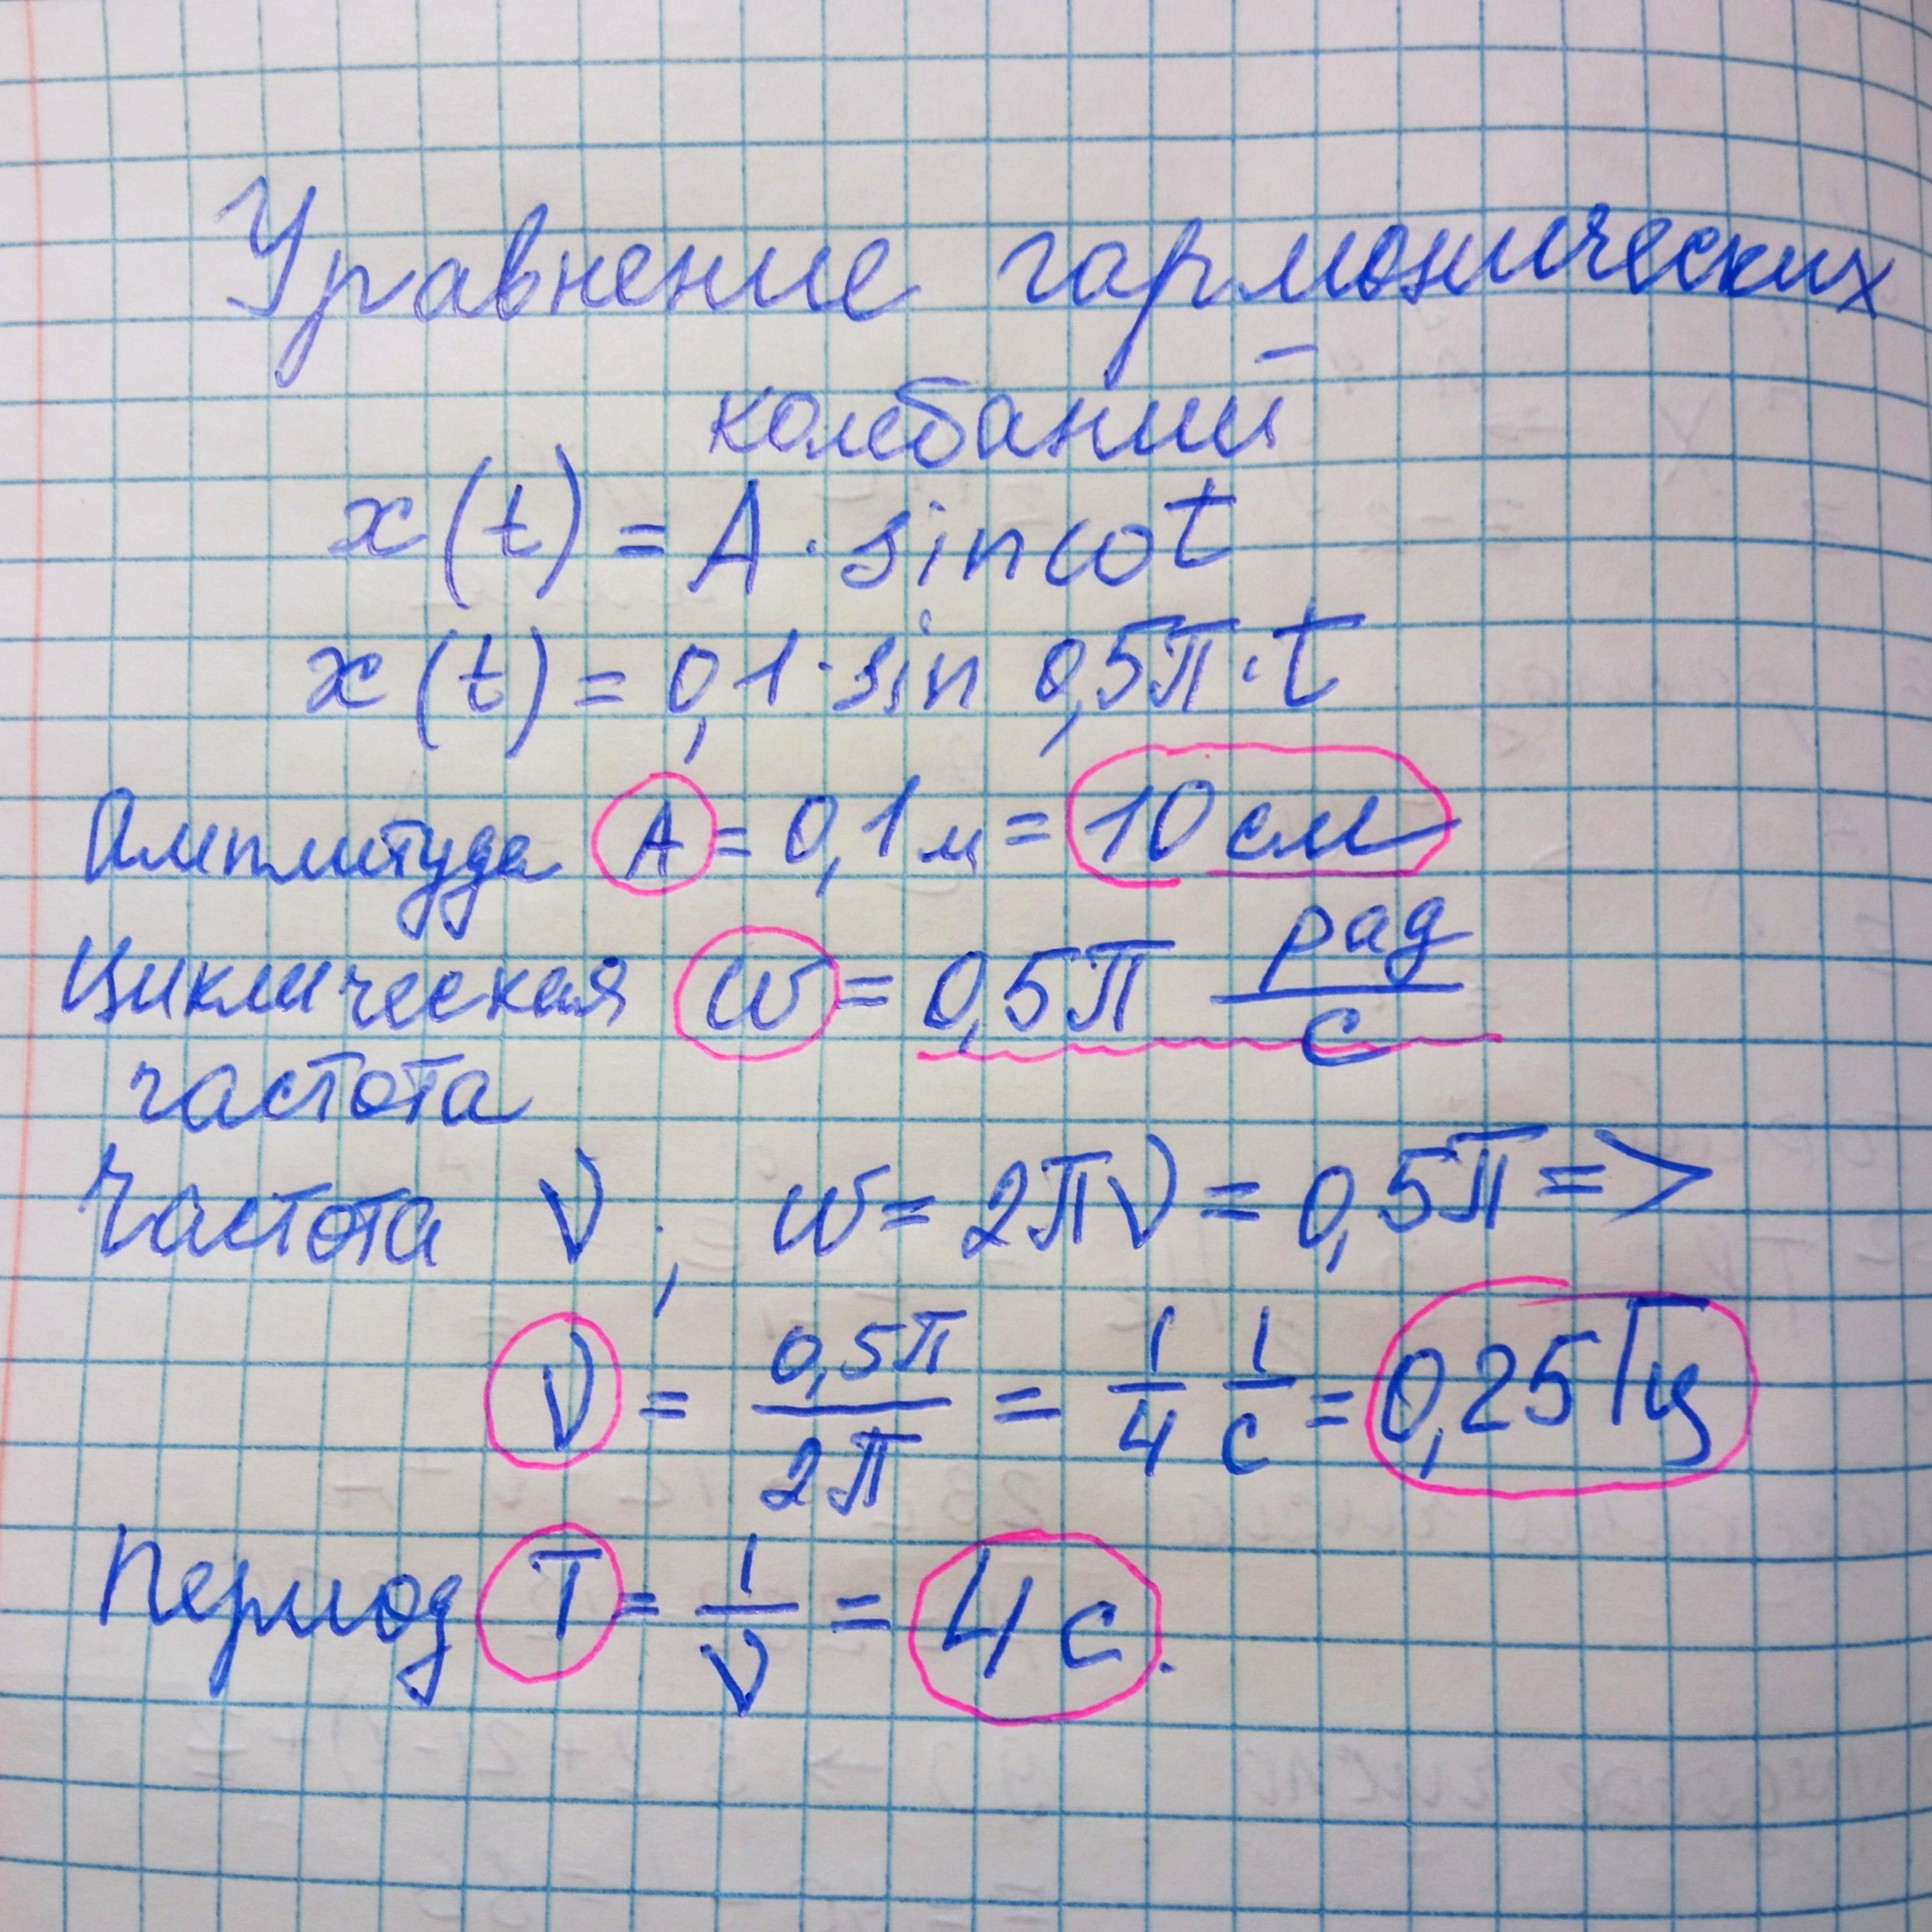 Уравнение гармонических
колбаний
x(t) = A · sin ωt
x(t) = 0,1 · sin 0,5π · t
Амплитуда A = 0,1 м = 10 см
Циклическая ω = 0,5π рад/с
частота
Частота ν ; ω = 2πν = 0,5π =>
ν = 0,5π/2π = 1/4 1/с = 0,25 Гц
Период T = 1/ν = 4 с.